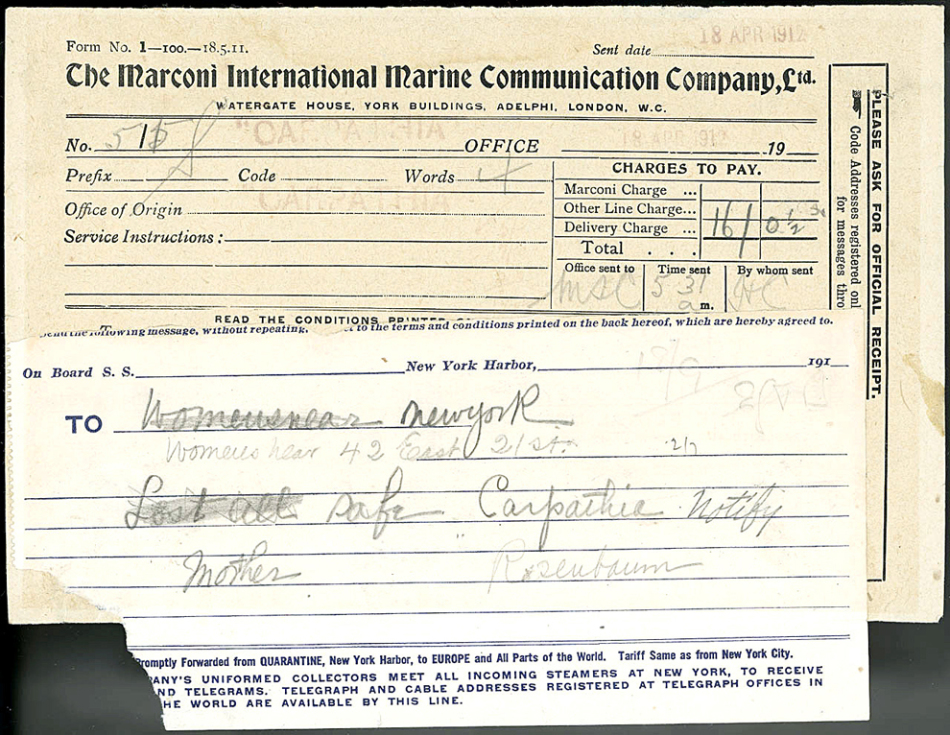 Form No. 1—100.—18.5.11.
Sent date 18 APR 1912
The Marconi International Marine Communication Company, Ltd.
WATERGATE HOUSE, YORK BUILDINGS, ADELPHI, LONDON, W.C.
No. OFFICE 18 APR 1912 19
Prefix Code Words 4
CHARGES TO PAY.
Marconi Charge ...
Office of Origin
Other Line Charge...
Delivery Charge ... 16/ 0½
Service Instructions :
Total . . .
Office sent to Time sent By whom sent
MSC 5 31 am. HC
READ THE CONDITIONS
Send the following message, without repeating, to the terms and conditions printed on the back hereof, which are hereby agreed to.
On Board S. S. New York Harbor, 191
TO Womenswear newyork
Womenswear 42 East 21 st.
Lost all safe Carpathia Notify
Mother Rosenbaum
Promptly Forwarded from QUARANTINE, New York Harbor, to EUROPE and All Parts of the World. Tariff Same as from New York City.
ANY'S UNIFORMED COLLECTORS MEET ALL INCOMING STEAMERS AT NEW YORK, TO RECEIVE
ND TELEGRAMS. TELEGRAPH AND CABLE ADDRESSES REGISTERED AT TELEGRAPH OFFICES IN
HE WORLD ARE AVAILABLE BY THIS LINE.
PLEASE ASK FOR OFFICIAL RECEIPT.
Code Addresses registered onl
for messages thro